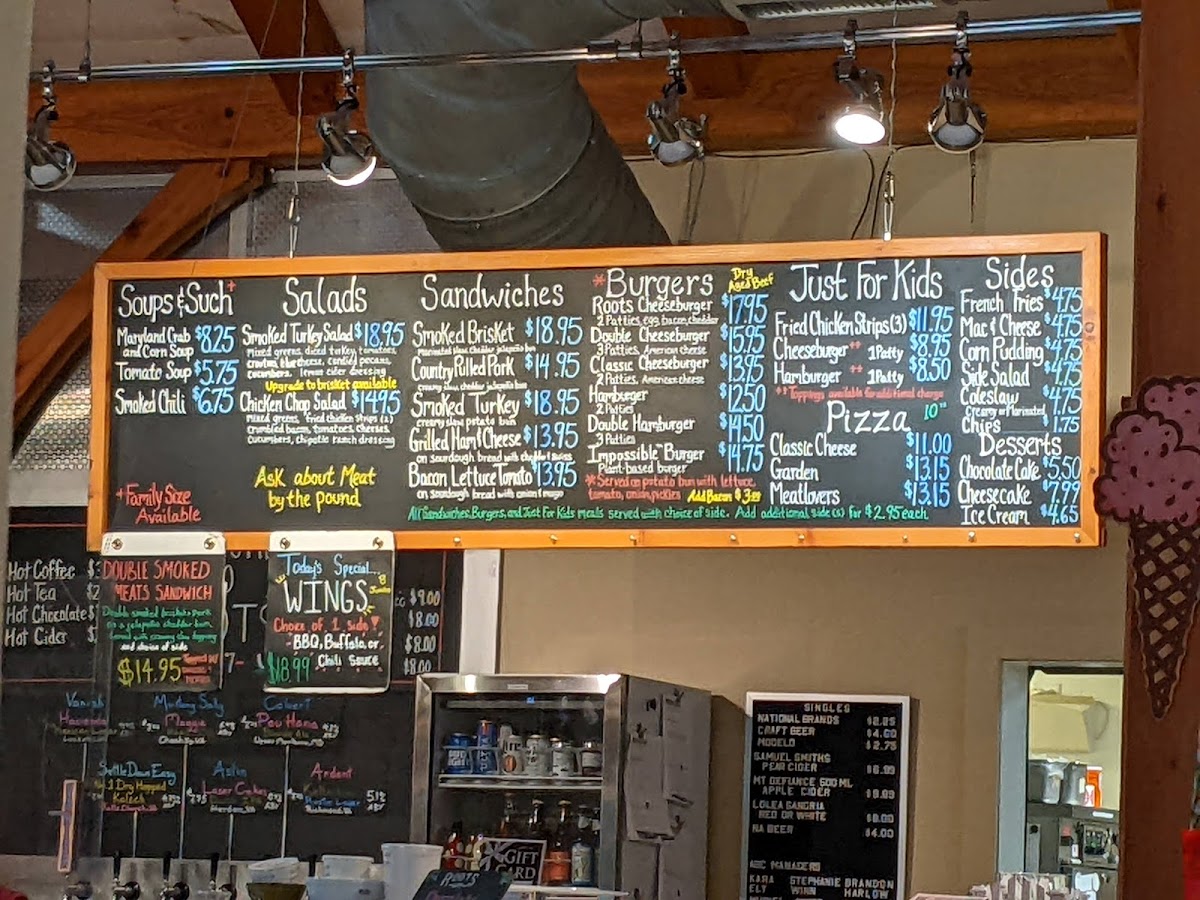 Soups & Such+
Maryland Crab and Corn Soup $8.25
Tomato Soup $5.75
Smoked Chili $6.75
+Family Size
Available
Salads
Smoked Turkey Salad $18.95
mixed greens, diced turkey, tomatoes,
crumbled blue cheese, candied pecans,
cucumbers, lemon cider dressing
Upgrade to brisket available
Chicken Chop Salad $14.95
mixed greens, fried chicken strips (2)
crumbled bacon, tomatoes, cheeses
cucumbers, chipotle ranch dressing
Ask about Meat
by the pound
Sandwiches
Smoked Brisket $18.95
marinated slaw, cheddar jalapeño bun
Country Pulled Pork $14.95
creamy slaw, cheddar jalapeño bun
Smoked Turkey $18.95
creamy slaw, potato bun
Grilled Ham & Cheese $13.95
on sourdough bread with cheddar & swiss
Bacon Lettuce Tomato $13.95
on sourdough bread with onion & mayo
*Burgers
Dry
Aged Beef
Roots Cheeseburger $17.95
2 Patties, egg, bacon, cheddar
Double Cheeseburger $15.95
3 Patties, American cheese
Classic Cheeseburger $13.95
2 Patties, American cheese
Hamburger $12.50
2 Patties
Double Hamburger $14.50
3 Patties
Impossible™ Burger $14.75
Plant-based burger
*Served on potato bun with lettuce,
tomato, onion, pickles Add Bacon $3.00
Just For Kids
Fried Chicken Strips (3) $11.95
Cheeseburger ++ 1 Patty $8.95
Hamburger ++ 1 Patty $8.50
++Toppings available for additional charge
Pizza 10"
Classic Cheese $11.00
Garden $13.15
Meatlovers $13.15
Sides
French Fries $4.75
Mac & Cheese $4.75
Corn Pudding $4.75
Side Salad $4.75
Coleslaw $4.75
Creamy or Marinated
Chips $1.75
Desserts
Chocolate Cake $5.50
Cheesecake $7.99
Ice Cream $4.65
All Sandwiches, Burgers, and Just For Kids meals served with choice of side. Add additional side(s) for $2.95 each
Hot Coffee $3
Hot Tea $2
Hot Chocolate $
Hot Cider $
DOUBLE SMOKED
MEATS SANDWICH
Double smoked brisket & pork
on a jalapeño cheddar bun
and choice of side
$14.95
Today's Special...
WINGS
8
Choice of 1 side!
BBQ, Buffalo, or
$18.99 Chili Sauce
$9.00
$8.00
$8.00
$8.00
Calvert
Pau Hana
Settle Down Easy
Dry Hopped
Kolsch
Aslin
Laser
Herndon, VA
Ardent
GIFT
CARD
ROOTS
SINGLES
NATIONAL BRANDS
CRAFT BEER $4.50
MODELO $2.75
SAMUEL SMITHS
PEAR CIDER $6.99
MT DEFIANCE 500 ML
APPLE CIDER $9.99
LOLEA SANGRIA
RED OR WHITE
NA BEER $4.00
ABC MANAGERS
KARA STEPHANIE BRANDON
ELY WINN HARLOW